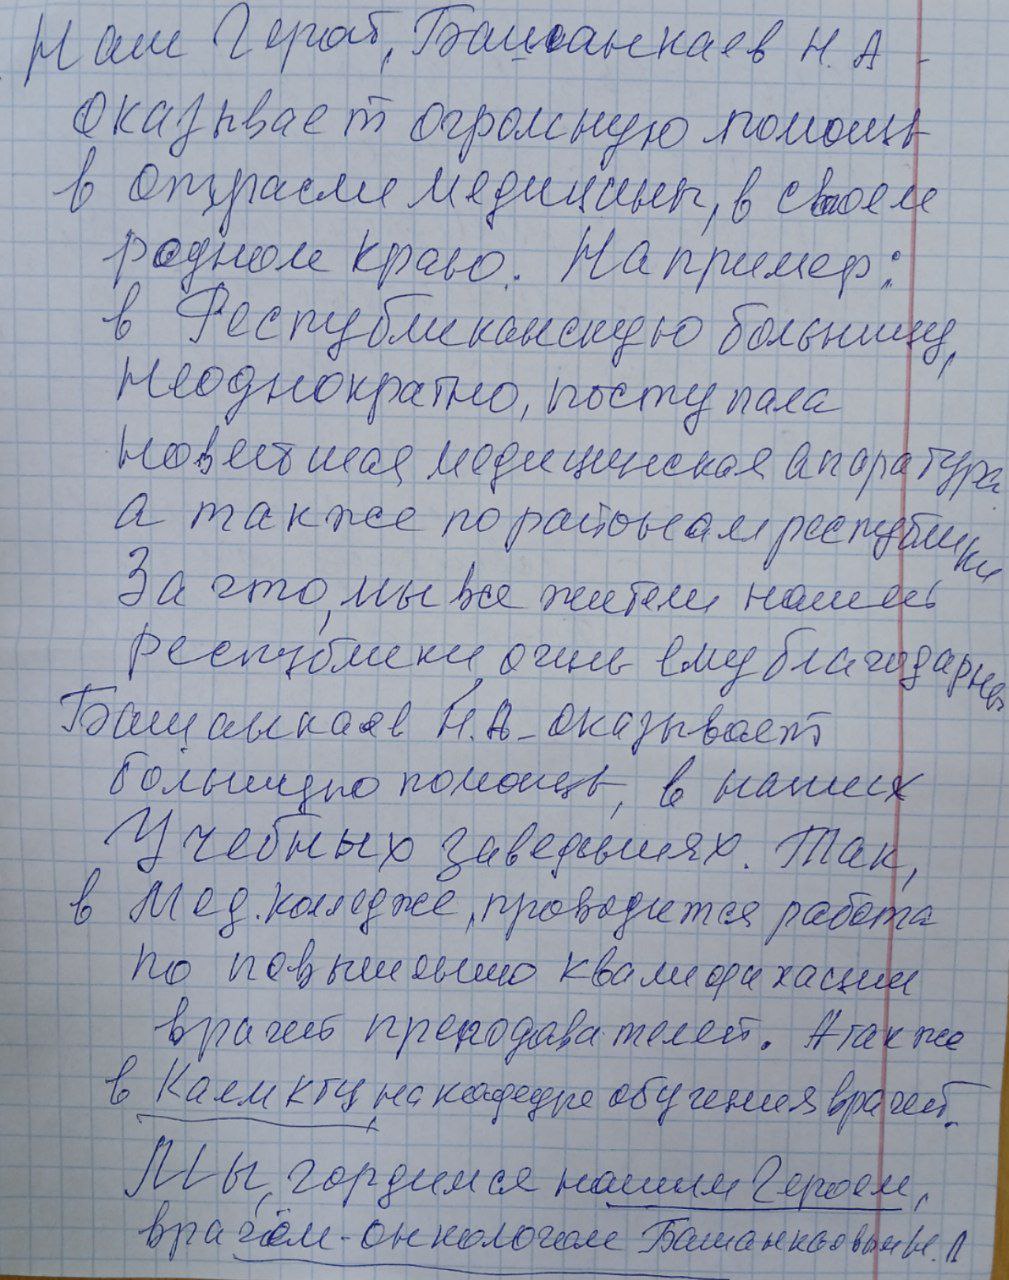 Наш Герой, Башанкаев Н. А -
оказывает огромную помощь
в отрасли медицины, в своем
родном краю. Например:
в Республиканскую больницу,
неоднократно, поступала
новейшая медицинская апаратура
а также по районам республики
За что, мы все жители нашей
республики, очень ему благодарны
Башанкаев Н.А - оказывает
большую помощь, в наших
Учебных заведениях. Так,
в Мед. колледже, проводится работа
по повышению квалификации
врачей преподавателей. А также
в Калмкту, на кафедре обучения врачей.
Мы, гордимся нашим Героем,
врачём-онкологом Башанкаевым Н. А